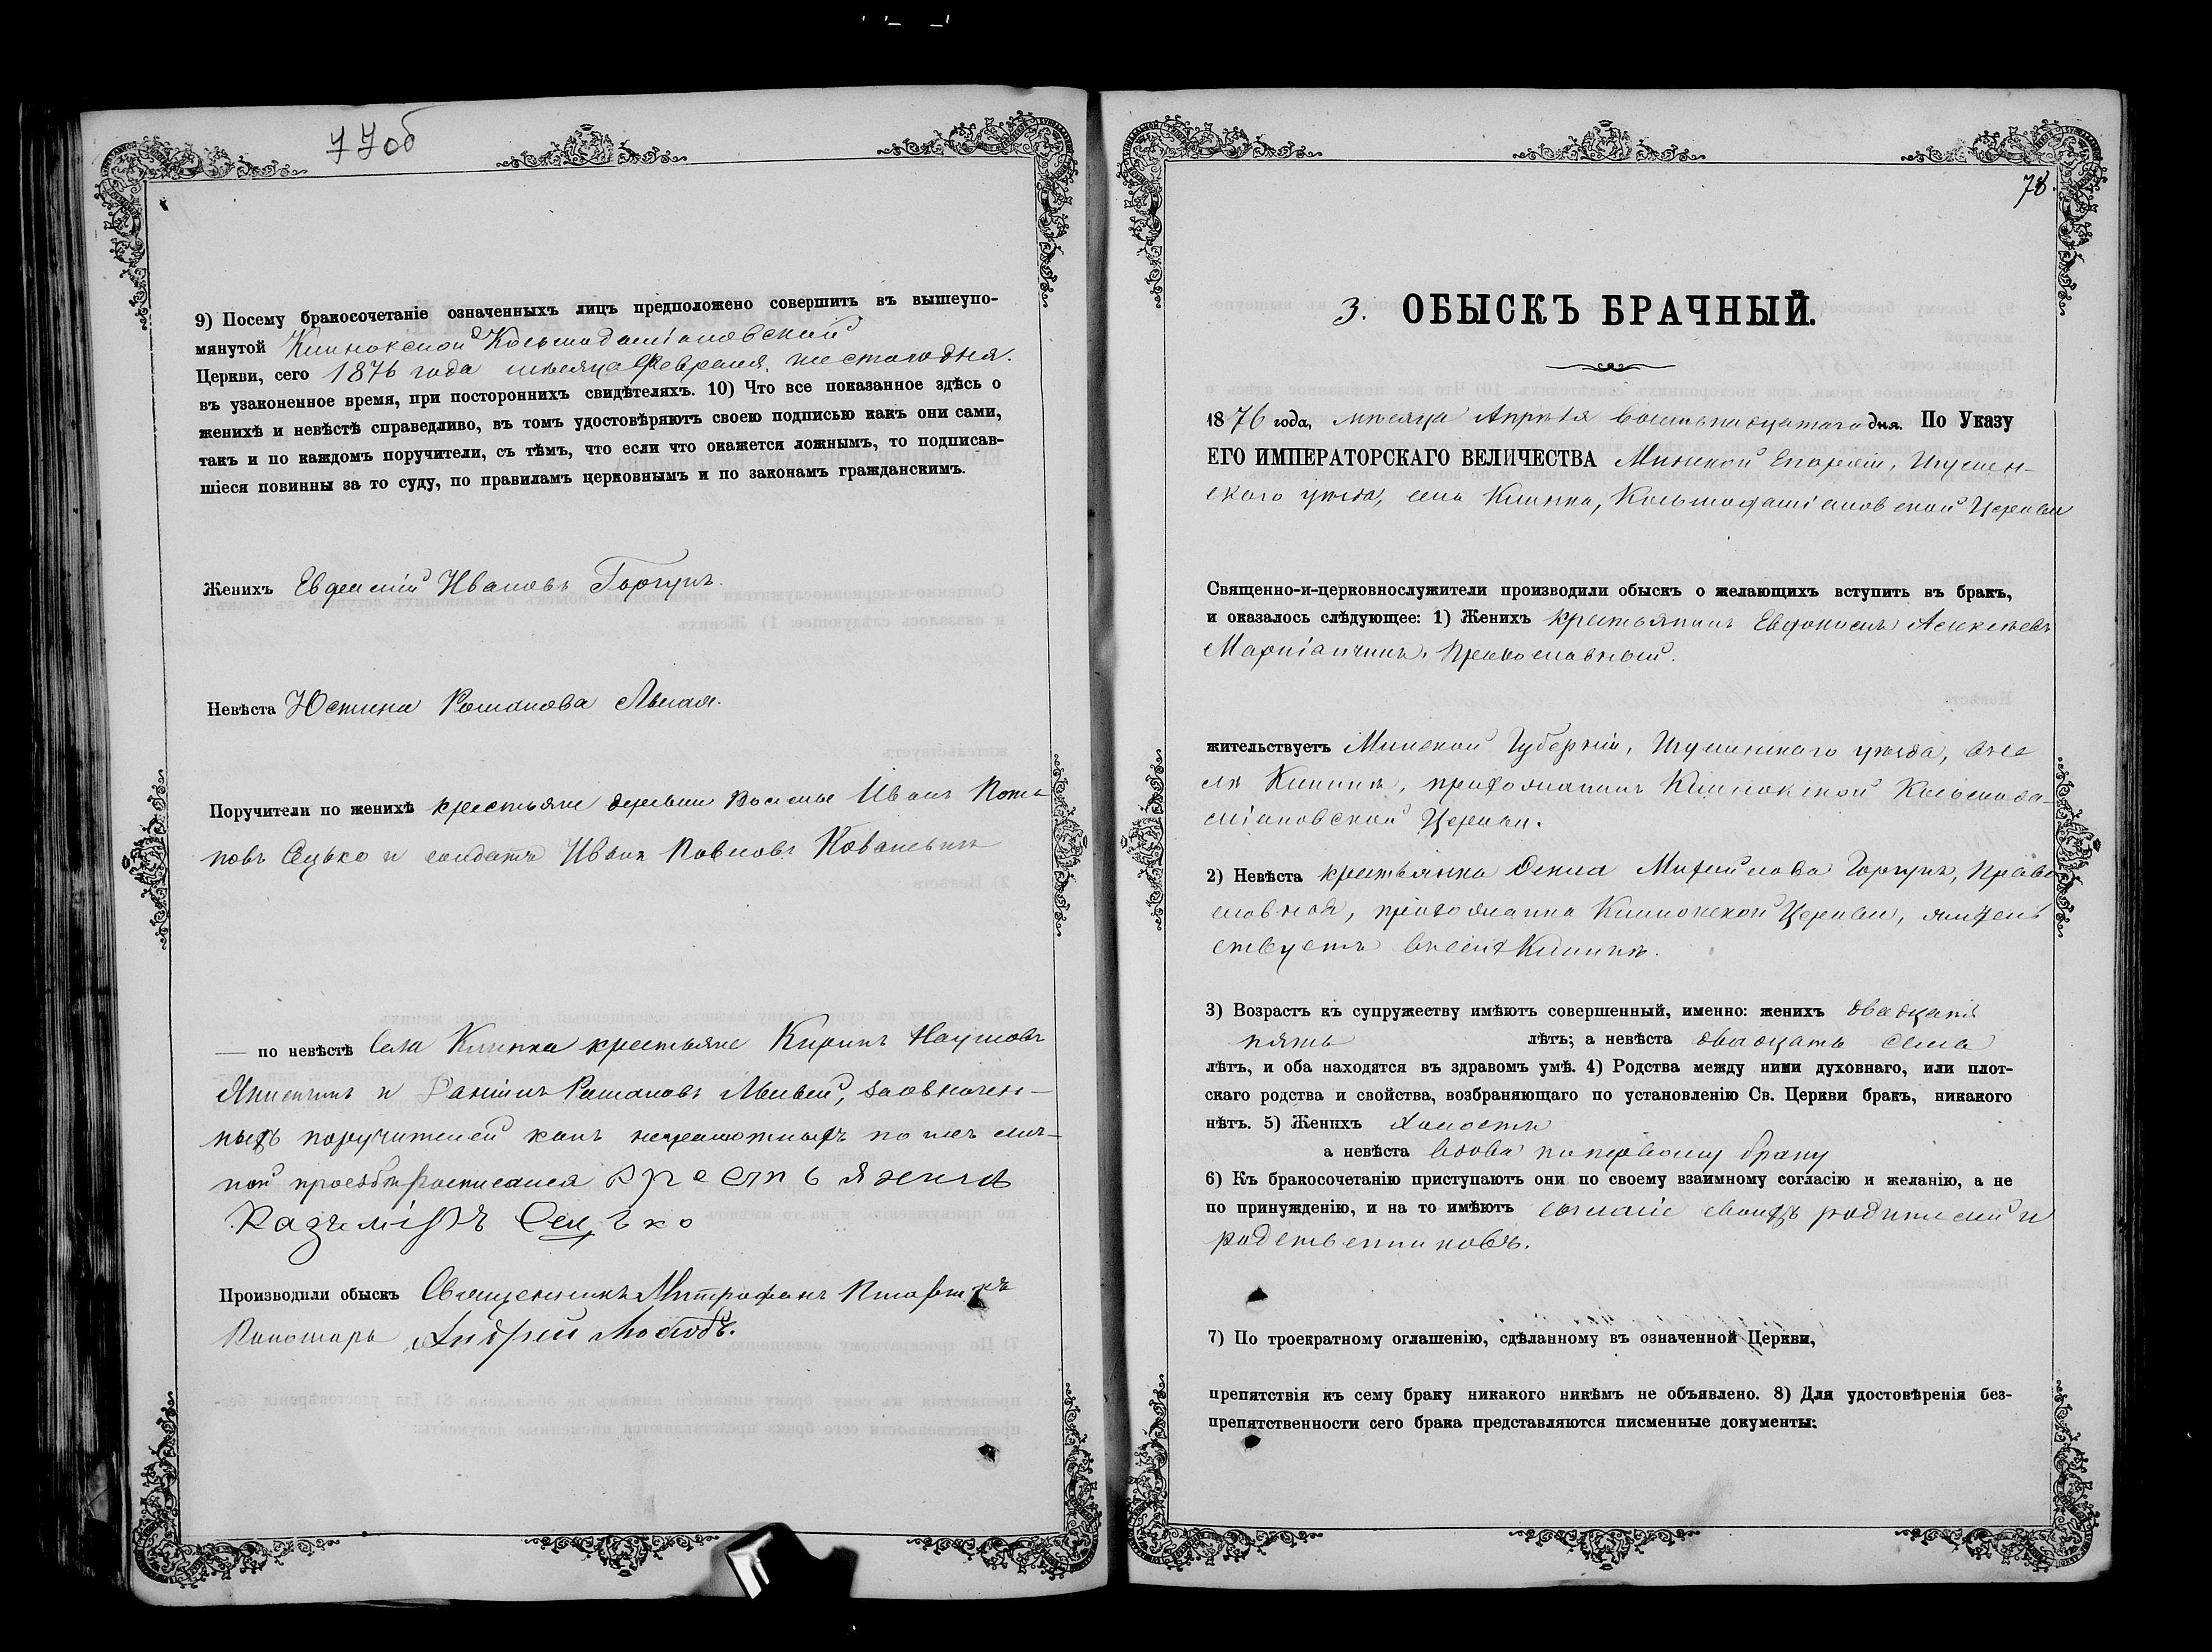 77об
9) Посему бракосочетаніе означенныхъ лицъ предположено совершить въ вышеупо-
мянутой Клинокской Косьмодаміановской
Церкви, сего 1876 года мѣсяца Февраля, шестаго дня.
въ узаконенное время, при постороннихъ свидѣтеляхъ. 10) Что все показанное здѣсь о
женихѣ и невѣстѣ справедливо, въ томъ удостовѣряютъ своею подписью какъ они сами,
такъ и по каждомъ поручители, съ тѣмъ, что если что окажется ложнымъ, то подписав-
шіеся повинны за то суду, по правиламъ церковнымъ и по законамъ гражданскимъ.
Женихъ Евфимій Ивановъ Горгунъ.
Невѣста Юстина Романова
Поручители по женихѣ крестьяне деревни Иванъ Пота-
повъ Сецько и солдатъ Иванъ Павловъ Ковалевичъ
— по невѣстѣ Села Клинка крестьяне Кирилъ Наумовъ
и Романовъ
ныхъ поручителей какъ неграмотныхъ по ихъ лич-
ной прозьбѣ росписался крестьянинъ
Казъміръ Сецъко
Производили обыскъ Священникъ Митрофанъ
Пономарь Андрей
78.
3. ОБЫСКЪ БРАЧНЫЙ.
1876 года, мѣсяца Апрѣля восемьнадцатаго дня. По Указу
ЕГО ИМПЕРАТОРСКАГО ВЕЛИЧЕСТВА Минской Епархіи, Игумен-
скаго уѣзда, села Клинка, Косьмодаміановской Церкви
Священно-и-церковнослужители производили обыскъ о желающихъ вступить въ бракъ,
и оказалось слѣдующее: 1) Женихъ крестьянинъ Алексѣевъ
Православный.
жительствуетъ Минской Губерніи, Игуменскаго уѣзда, въ се
лѣ Клинкѣ, прихожанинъ Клинокской Косьмода-
міановской Церкви.
2) Невѣста крестьянка Михайлова Горгунъ, Право
славная, прихожанка Клинокской Церкви, жител
ствуетъ въ селѣ Клинкѣ.
3) Возрастъ къ супружеству имѣютъ совершенный, именно: женихъ двадцати
пять лѣтъ; а невѣста двадцать семь
лѣтъ, и оба находятся въ здравомъ умѣ. 4) Родства между ними духовнаго, или плот-
скаго родства и свойства, возбраняющаго по установленію Св. Церкви бракъ, никакого
нѣтъ. 5) Женихъ холостъ
а невѣста вдова по первому браку
6) Къ бракосочетанію приступаютъ они по своему взаимному согласію и желанію, а не
по принужденію, и на то имѣютъ согласіе своихъ родителей и
родственниковъ.
7) По троекратному оглашенію, сдѣланному въ означенной Церкви,
препятствія къ сему браку никакого никѣмъ не объявлено. 8) Для удостовѣренія без-
препятственности сего брака представляются писменные документы: